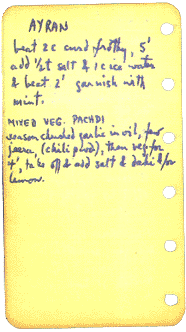 AYRAN
beat 2c curd frothy, 5'
add ½t salt & 1c ice water
& beat 2' garnish with
mint.
MIXED VEG. PACHDI
season crushed garlic in oil, few
jeera, (chili powd), then veg for
4', take off & add salt & dahi &/or
lemon.